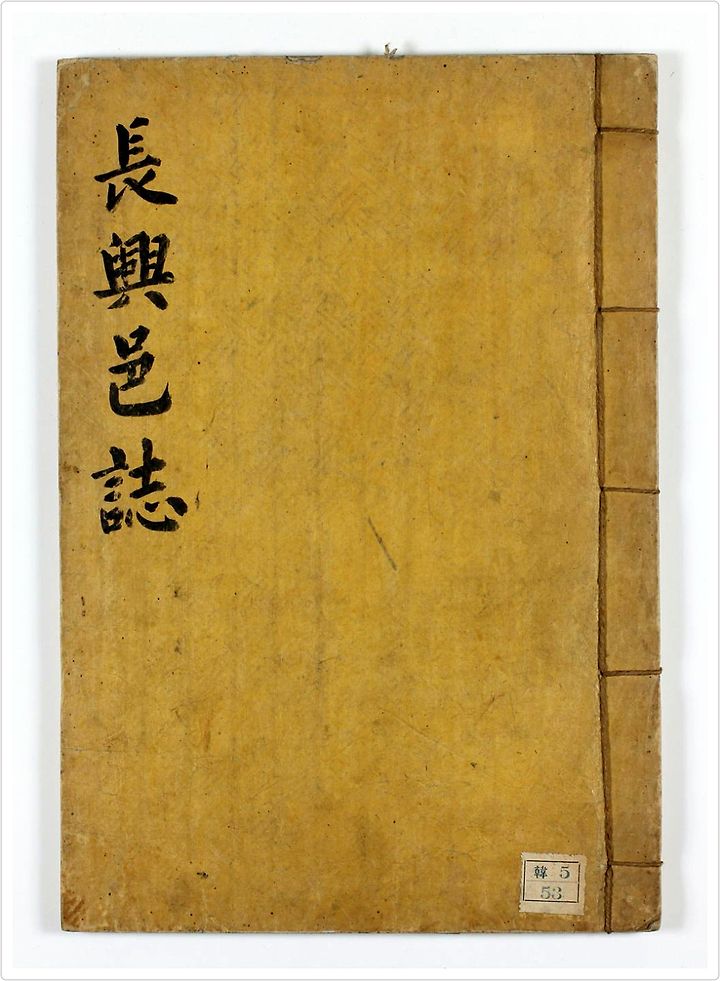 長興邑誌
韓 5
53